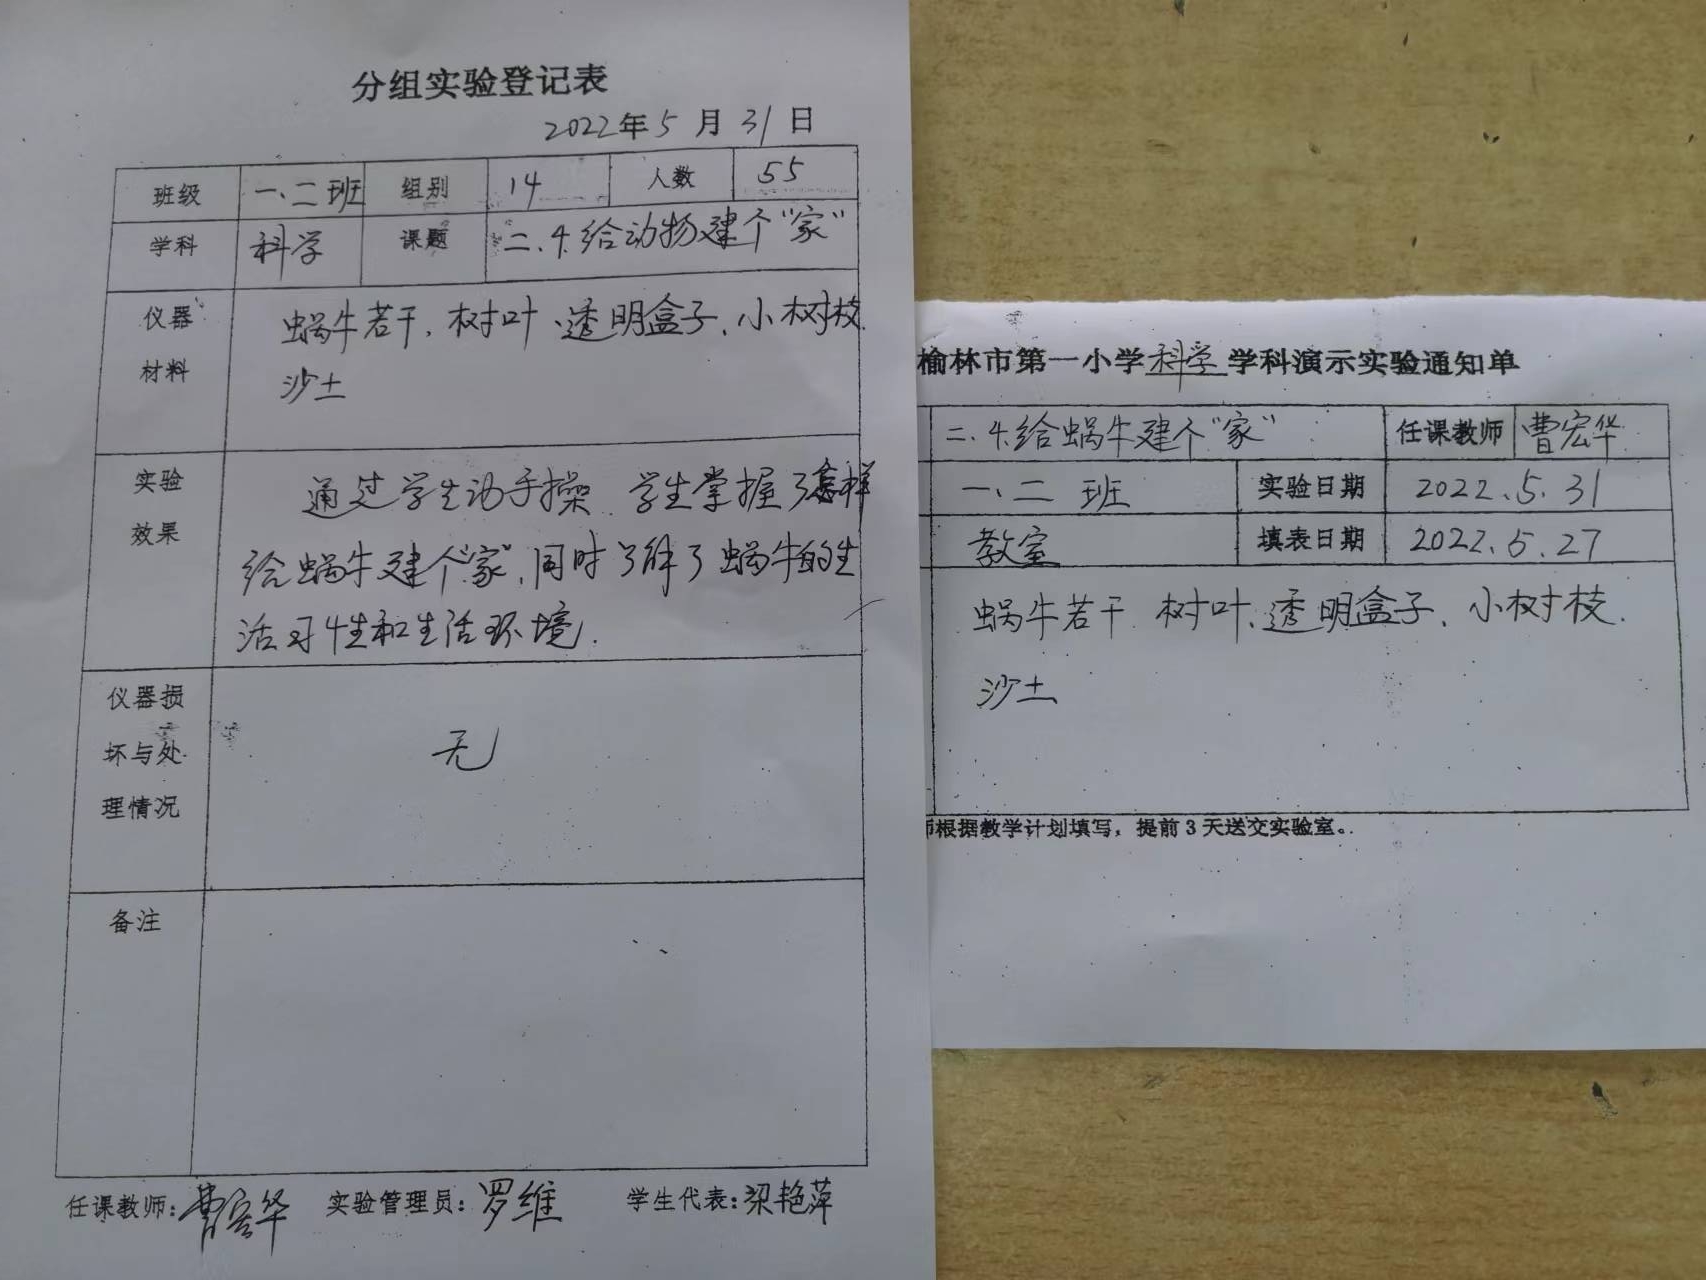 分组实验登记表
2022年5月31日
班级 一、二班 组别 14 人数 55
学科 科学 课题 二、4.给动物建个“家”
仪器 蜗牛若干、树叶、透明盒子、小树枝.
材料 沙土
实验 通过学生动手操 学生掌握了怎样
效果 给蜗牛建个“家”,同时了解了蜗牛的生
活习性和生活环境.
仪器损
坏与处 无
理情况
备注
任课教师:曹宏华 实验管理员:罗维 学生代表:梁艳萍
榆林市第一小学科学学科演示实验通知单
二、4.给蜗牛建个“家” 任课教师 曹宏华
一、二 班 实验日期 2022.5.31
教室 填表日期 2022.5.27
蜗牛若干 树叶、透明盒子、小树枝.
沙土
师根据教学计划填写，提前3天送交实验室。